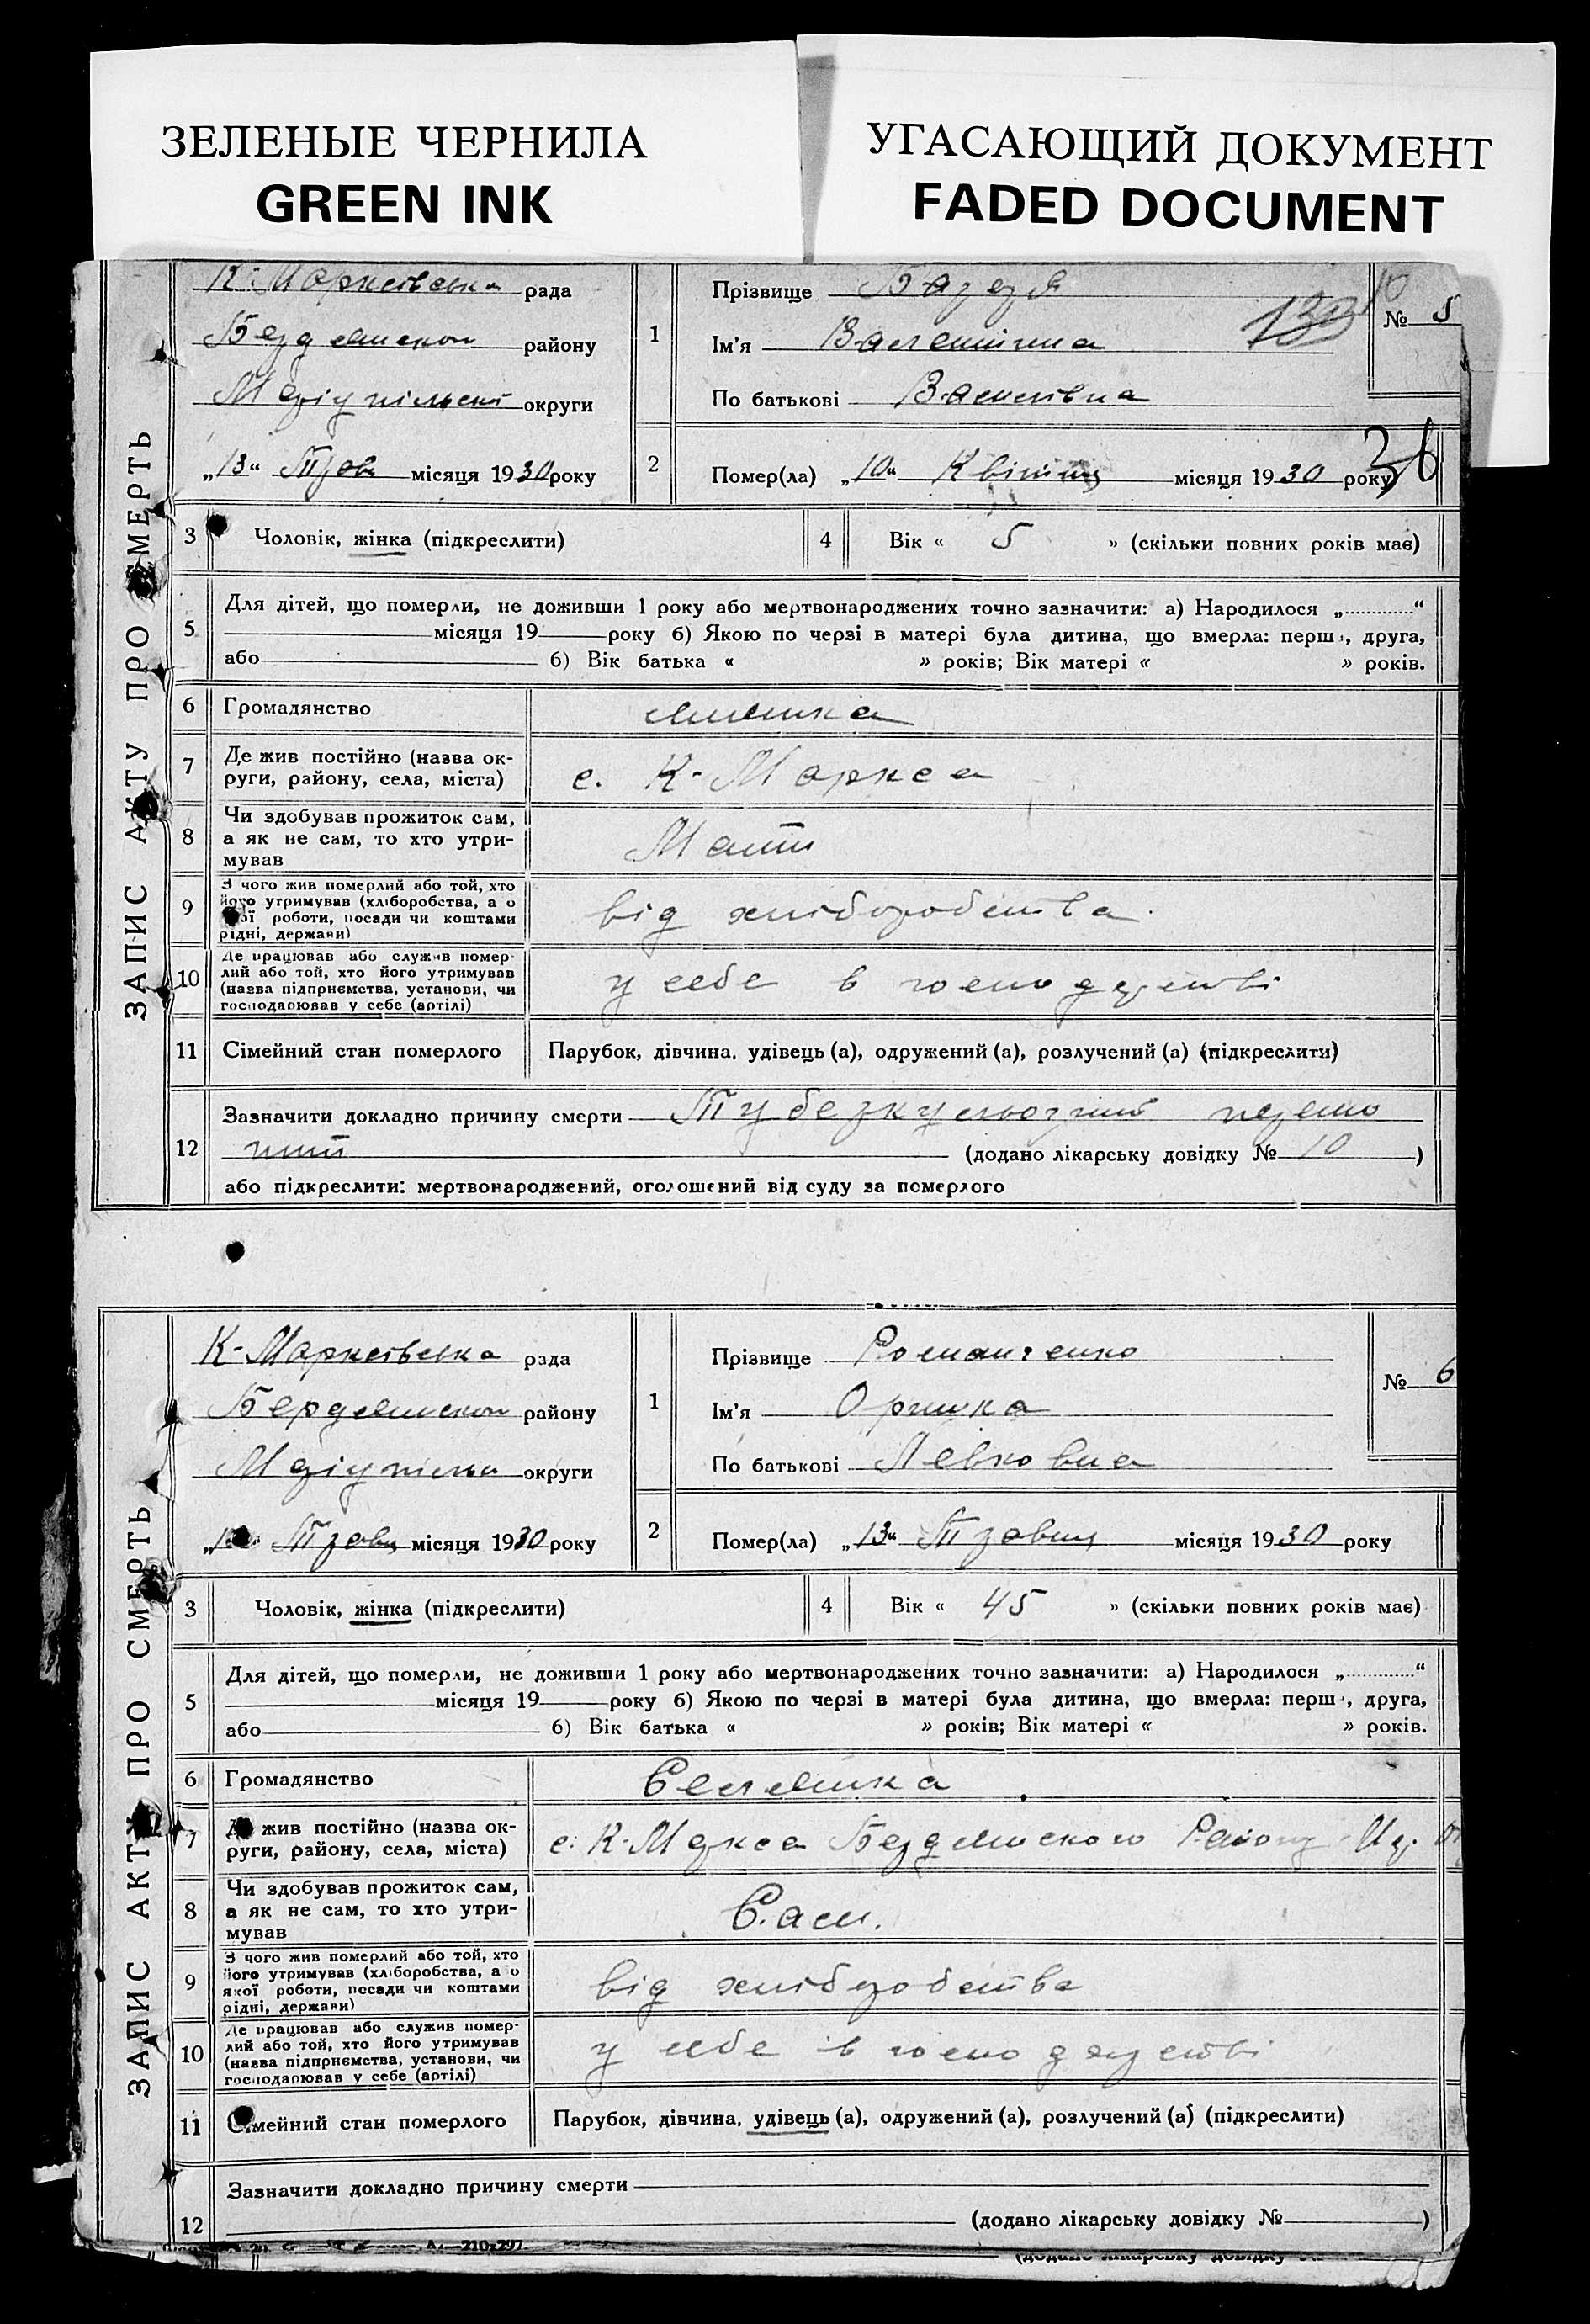 ЗЕЛЕНЫЕ ЧЕРНИЛА
GREEN INK
УГАСАЮЩИЙ ДОКУМЕНТ
FADED DOCUMENT
ЗАПИС АКТУ ПРО СМЕРТЬ
К-Марксівська рада
району
округи
„13“ місяця 1930 року
1
Прізвище
Ім'я Валентина
По батькові
№ 5
2
Помер(ла) „10“ Квітня місяця 1930 року
36
3 Чоловік, жінка (підкреслити)
4 Вік « 5 » (скільки повних років має)
5 Для дітей, що померли, не доживши 1 року або мертвонароджених точно зазначити: а) Народилося „ “
місяця 19 року б) Якою по черзі в матері була дитина, що вмерла: перш , друга,
або б) Вік батька « » років; Вік матері « » років.
6 Громадянство
7 Де жив постійно (назва ок-
руги, району, села, міста) с. К-Маркса
8 Чи здобував прожиток сам,
а як не сам, то хто утри-
мував Мати
9 З чого жив померлий або той, хто
його утримував (хліборобства, а о
ої роботи, посади чи коштами
рідні, держави) від хліборобства
10 Де працював або служив помер-
лий або той, хто його утримував
(назва підприємства, установи, чи
господарював у себе (артілі) у себе в господарстві
11 Сімейний стан померлого Парубок, дівчина, удівець (а), одружений (а), розлучений (а) (підкреслити)
12 Зазначити докладно причину смерти
(додано лікарську довідку № 10 )
або підкреслити: мертвонароджений, оголошений від суду за померлого
ЗАПИС АКТУ ПРО СМЕРТЬ
К-Марксівська рада
району
округи
Травня місяця 1930 року
1
Прізвище Романченко
Ім'я Оришка
По батькові Левковна
№ 6
2
Помер(ла) „13“ Травня місяця 1930 року
3 Чоловік, жінка (підкреслити)
4 Вік « 45 » (скільки повних років має)
5 Для дітей, що померли, не доживши 1 року або мертвонароджених точно зазначити: а) Народилося „ “
місяця 19 року б) Якою по черзі в матері була дитина, що вмерла: перш , друга,
або б) Вік батька « » років; Вік матері « » років.
6 Громадянство Селянка
7 Де жив постійно (назва ок-
руги, району, села, міста) с. К-Маркса Району
8 Чи здобував прожиток сам,
а як не сам, то хто утри-
мував Сам.
9 З чого жив померлий або той, хто
його утримував (хліборобства, а о
якої роботи, посади чи коштами
рідні, держави) від хліборобства
10 Де працював або служив помер-
лий або той, хто його утримував
(назва підприємства, установи, чи
господарював у себе (артілі) у себе в господарстві
11 Сімейний стан померлого Парубок, дівчина, удівець (а), одружений (а), розлучений (а) (підкреслити)
12 Зазначити докладно причину смерти
(додано лікарську довідку № )
210х297
(додано лікарську довідку